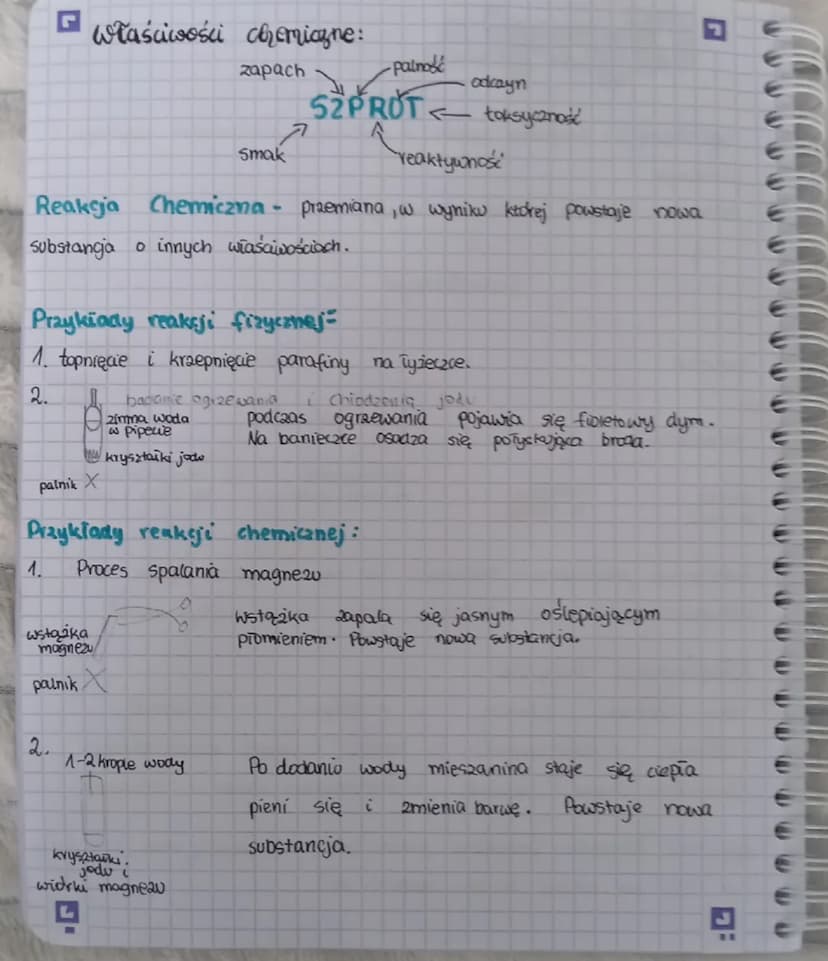 właściwości chemiczne:
zapach
palność
odczyn
SZPROT
toksyczność
smak
reaktywność
Reakcja Chemiczna - przemiana, w wyniku której powstaje nowa
substancja o innych właściwościach.
Przykłady reakcji fizycznej=
1. topnięcie i krzepnięcie parafiny na łyżeczce.
2. badanie ogrzewania i chłodzenia jodu
zimna woda
w pipecie
podczas ogrzewania pojawia się fioletowy dym.
Na banieczce osadza się połyskująca broza.
kryształki jodu
palnik X
Przykłady reakcji chemicznej:
1. Proces spalania magnezu
wstążka
magnezu
wstążka zapala się jasnym oślepiającym
płomieniem. Powstaje nowa substancja.
palnik X
2.
1-2 krople wody
Po dodaniu wody mieszanina staje się ciepła
pieni się i zmienia barwę. Powstaje nowa
substancja.
kryształki
jodu i
wiórki magnezu